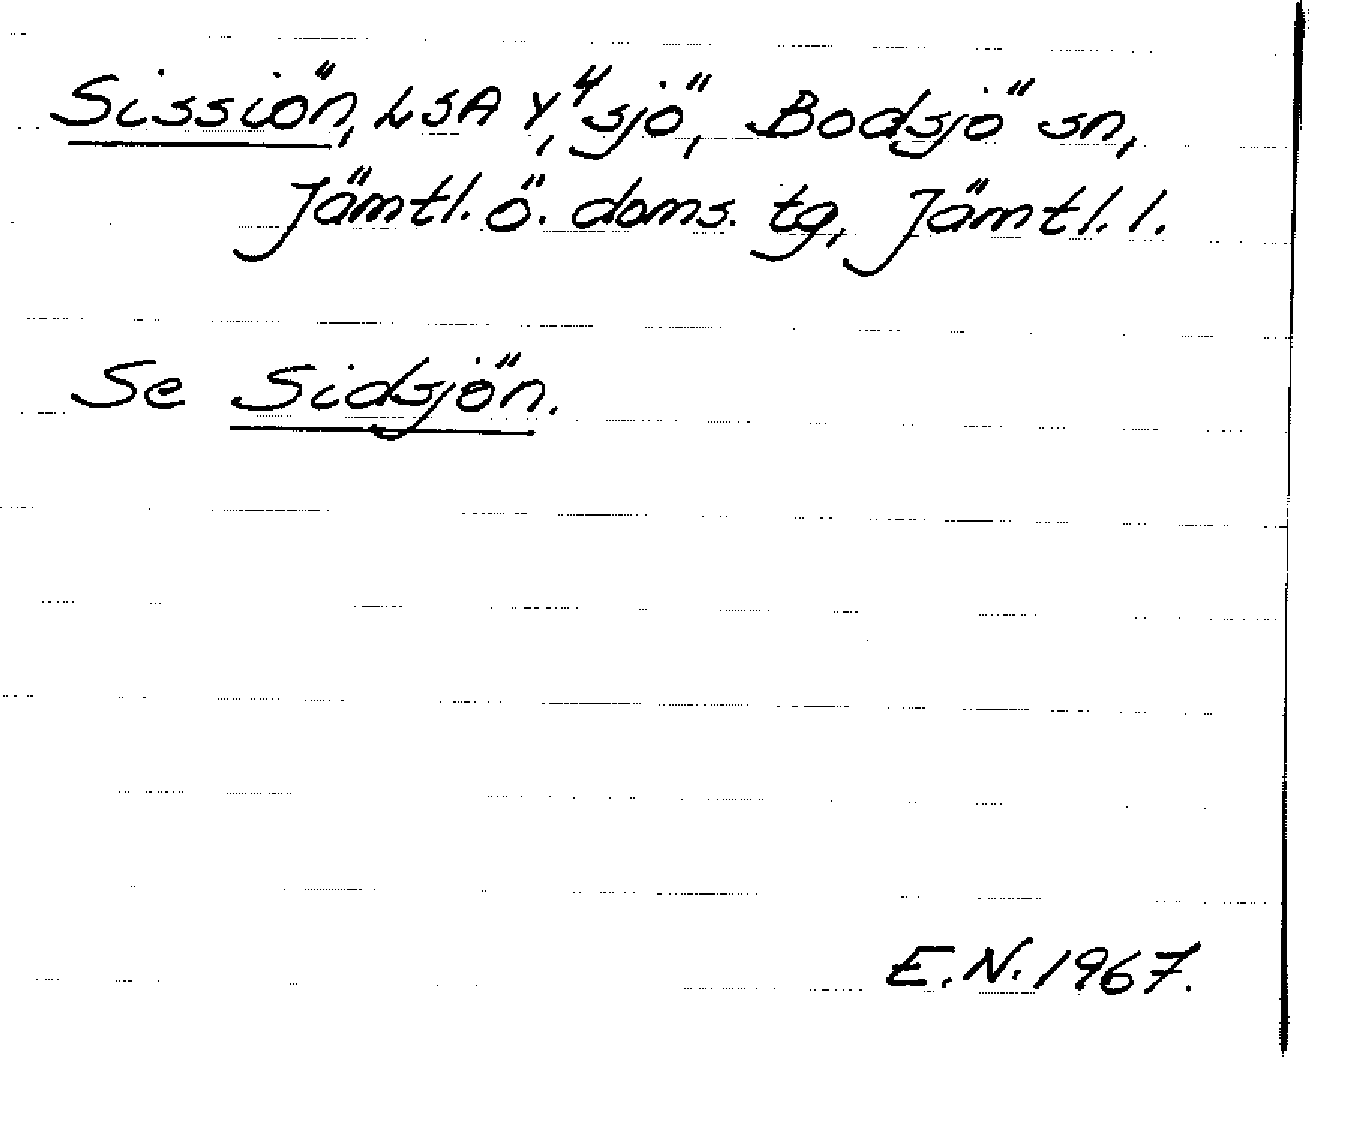 Sissiön, LSA Y,4 sjö, Bodsjö sn,
Jämtl. ö. doms. tg, Jämtl. l.
Se Sidsjön.
E.N. 1967.